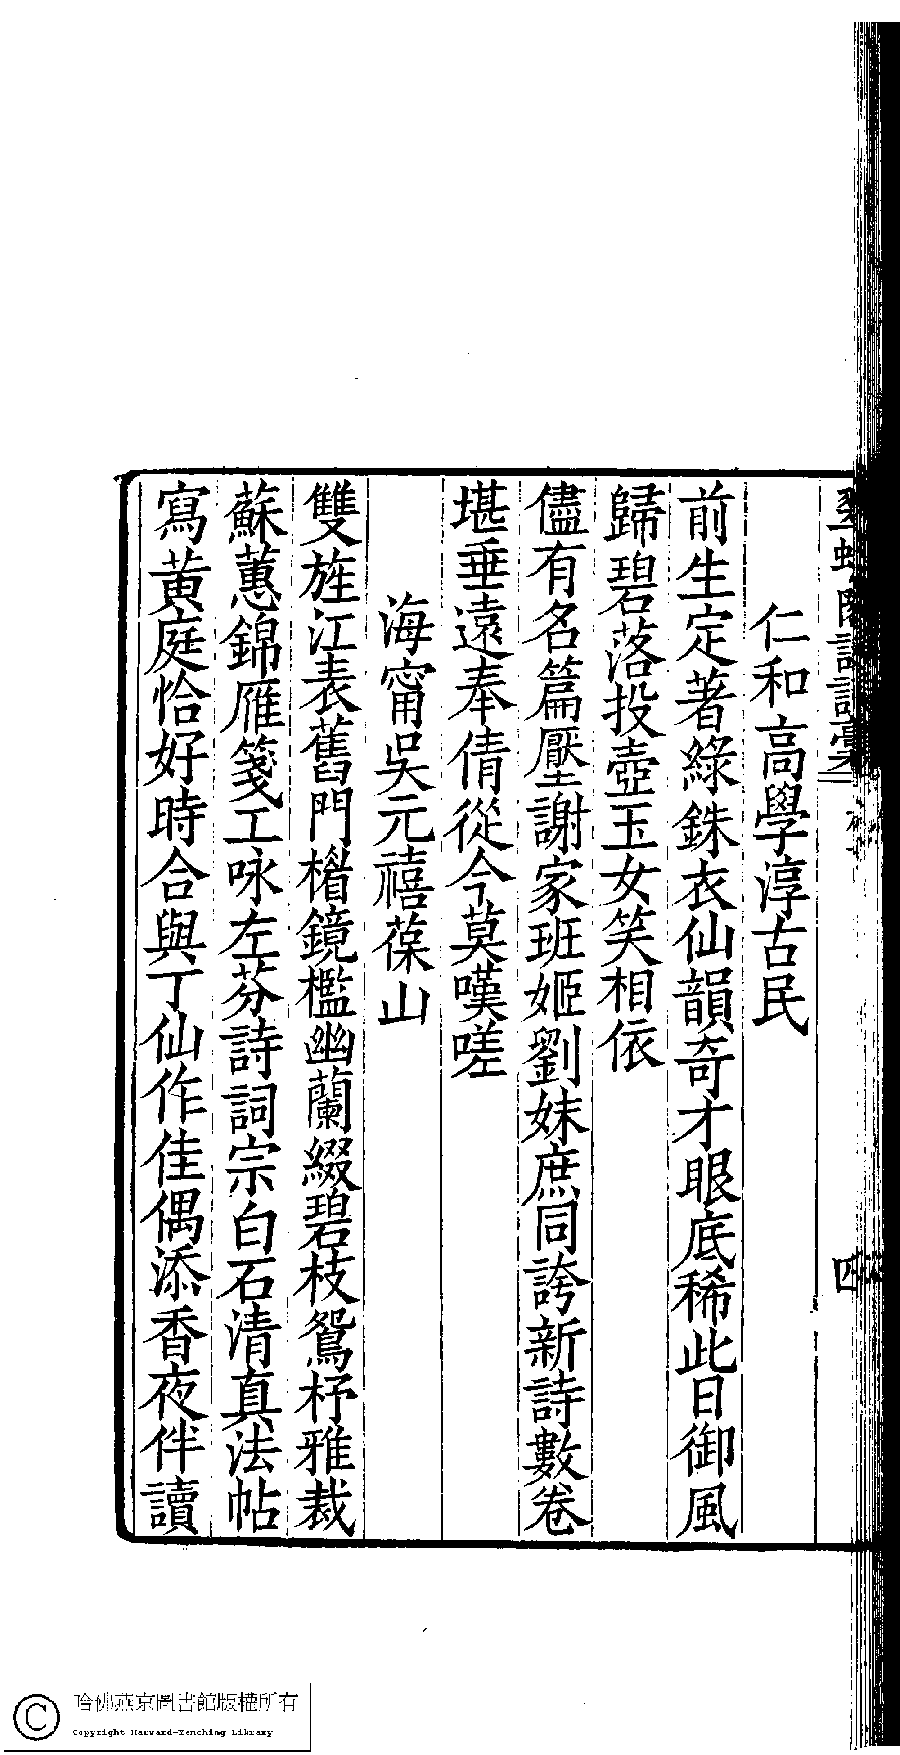 閣詩詞藁
四
仁和高學淳古民
前生定著綠銖衣仙韻奇才眼底稀此日御風
歸碧落投壺玉女笑相依
儘有名篇壓謝家班姬劉妹庶同誇新詩數卷
堪垂遠奉倩從今莫嘆嗟
海甯吳元禧葆山
雙旌江表舊門楣鏡檻幽蘭綴碧枝鴛杼雅裁
蘇蕙錦雁箋工咏左芬詩詞宗白石清真法帖
寫黃庭恰好時合與丁仙作佳偶添香夜伴讀
哈佛燕京圖書館版權所有
Copyright Harvard-Yenching Library